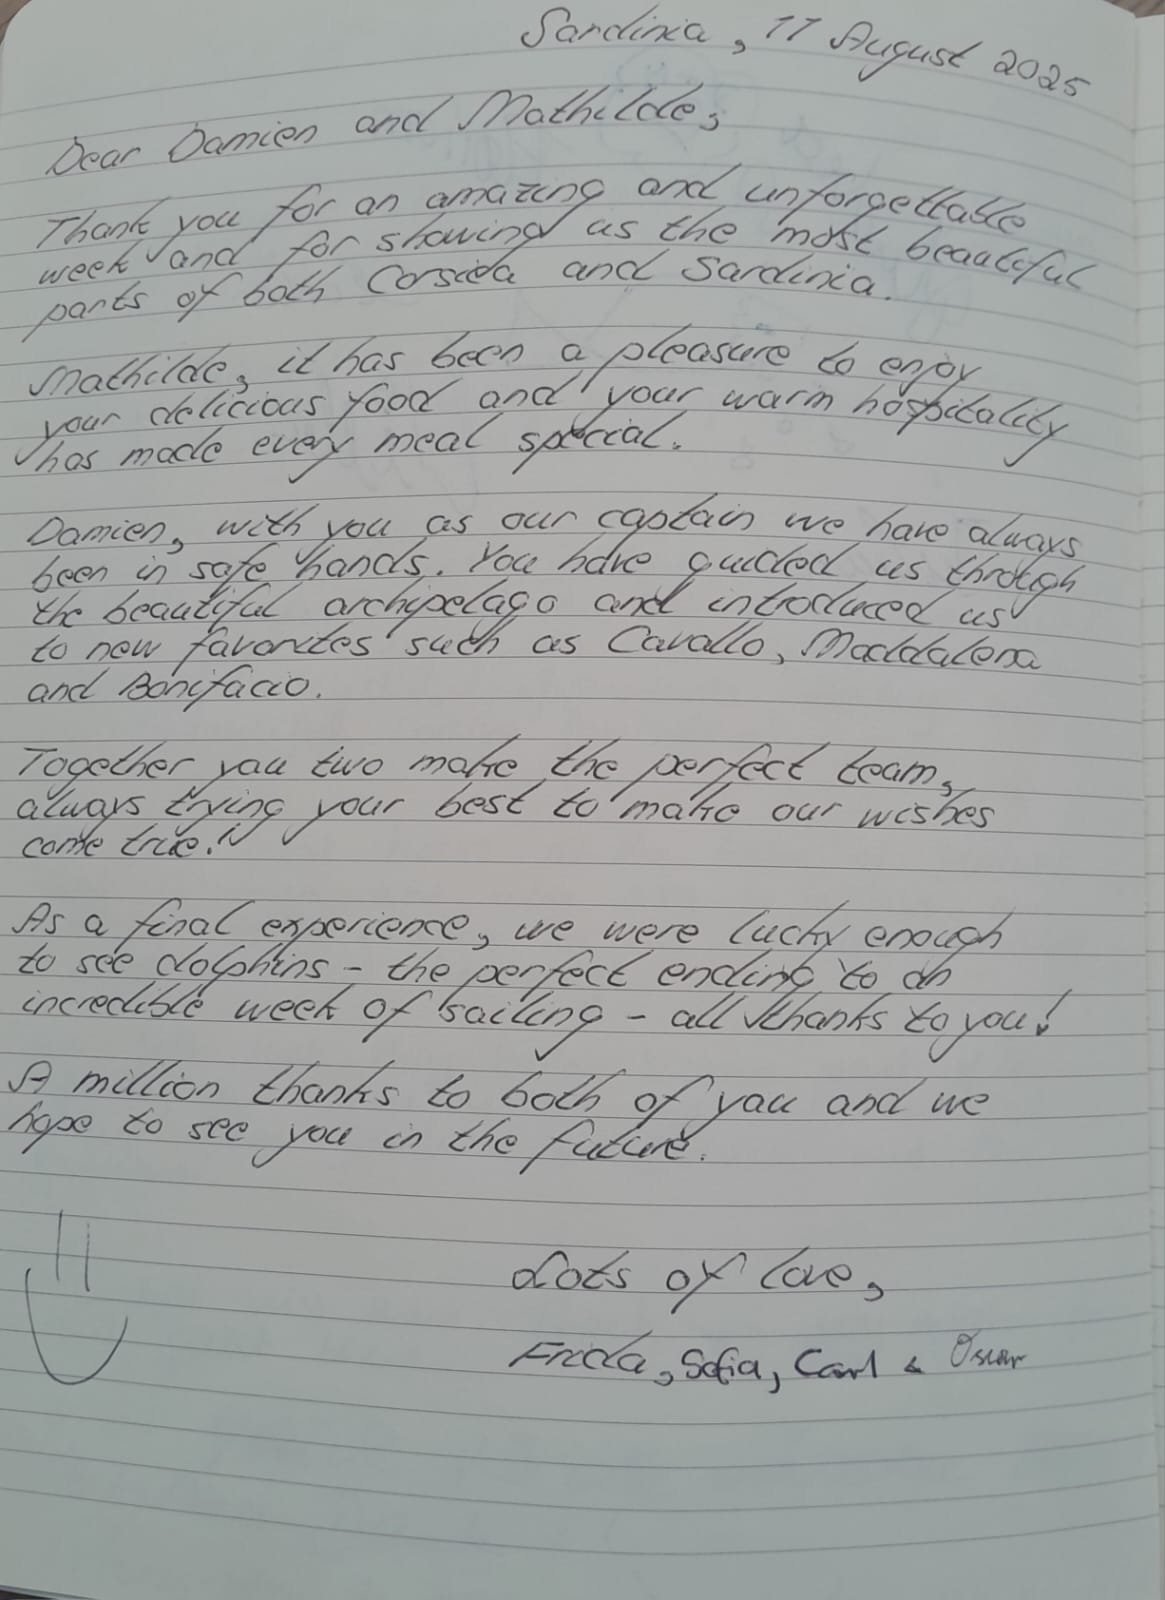 Sardinia, 11 August 2025
Dear Damien and Mathilde,
Thank you for an amazing and unforgettable
week and for showing us the most beautiful
parts of both Corsica and Sardinia.
Mathilde, it has been a pleasure to enjoy
your delicious food and your warm hospitality
has made every meal special.
Damien, with you as our captain we have always
been in safe hands. You have guided us through
the beautiful archipelago and introduced us
to new favorites such as Cavallo, Maddalena
and Bonifacio.
Together you two make the perfect team,
always trying your best to make our wishes
come true.
As a final experience, we were lucky enough
to see dolphins – the perfect ending to an
incredible week of sailing – all thanks to you!
A million thanks to both of you and we
hope to see you in the future.
Lots of love,
Frida, Sofia, Carl & Oscar